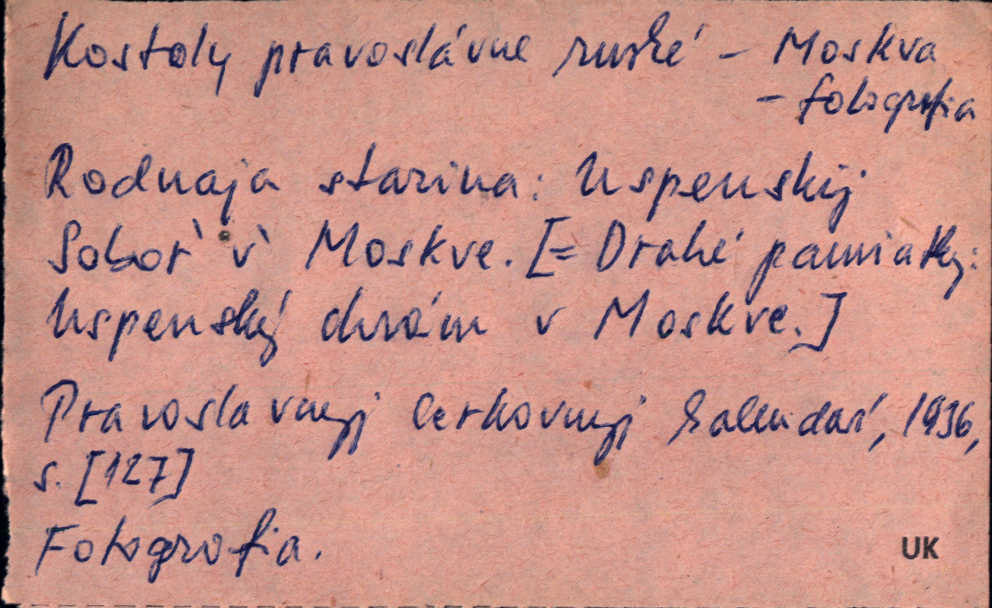 Kostoly pravoslávne ruské - Moskva
- fotografia
Rodnaja starina: Uspenskij
Sobor' v' Moskve. [= Drahé pamiatky:
Uspenský chrám v Moskve.]
Pravoslavnyj cerkovnyj kalendar', 1936,
s. [127]
Fotografia.
UK